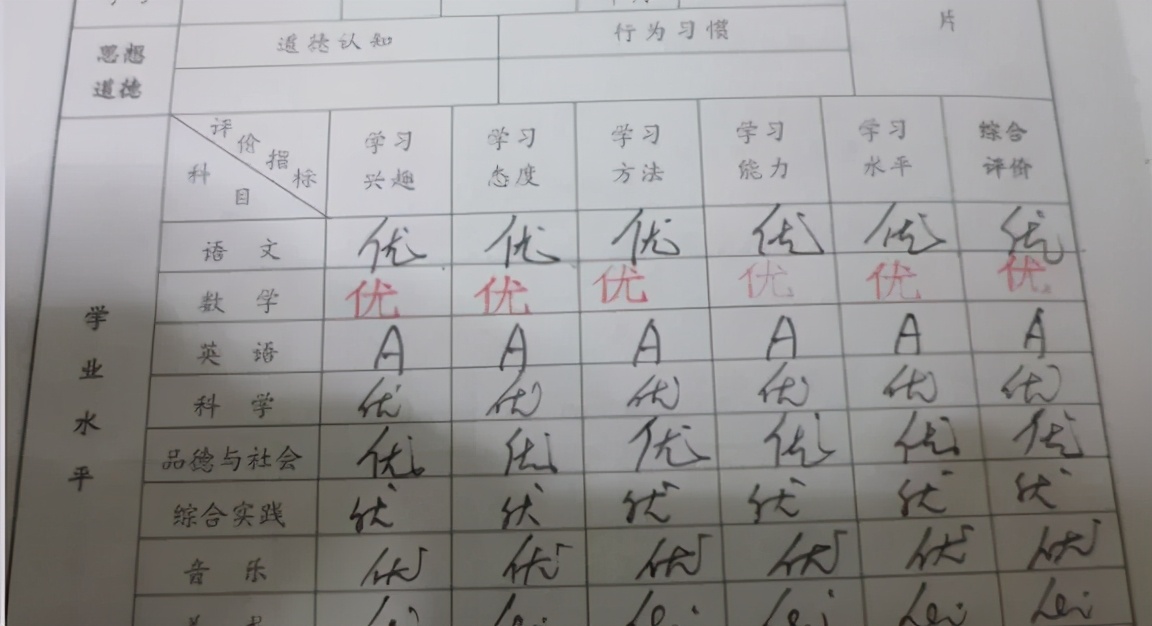 片
思想道德 道德认知 行为习惯
评价指标 科目 学习兴趣 学习态度 学习方法 学习能力 学习水平 综合评价
学业水平
语文 优 优 优 优 优 优
数学 优 优 优 优 优 优
英语 A A A A A A
科学 优 优 优 优 优 优
品德与社会 优 优 优 优 优 优
综合实践 优 优 优 优 优 优
音乐 优 优 优 优 优 优